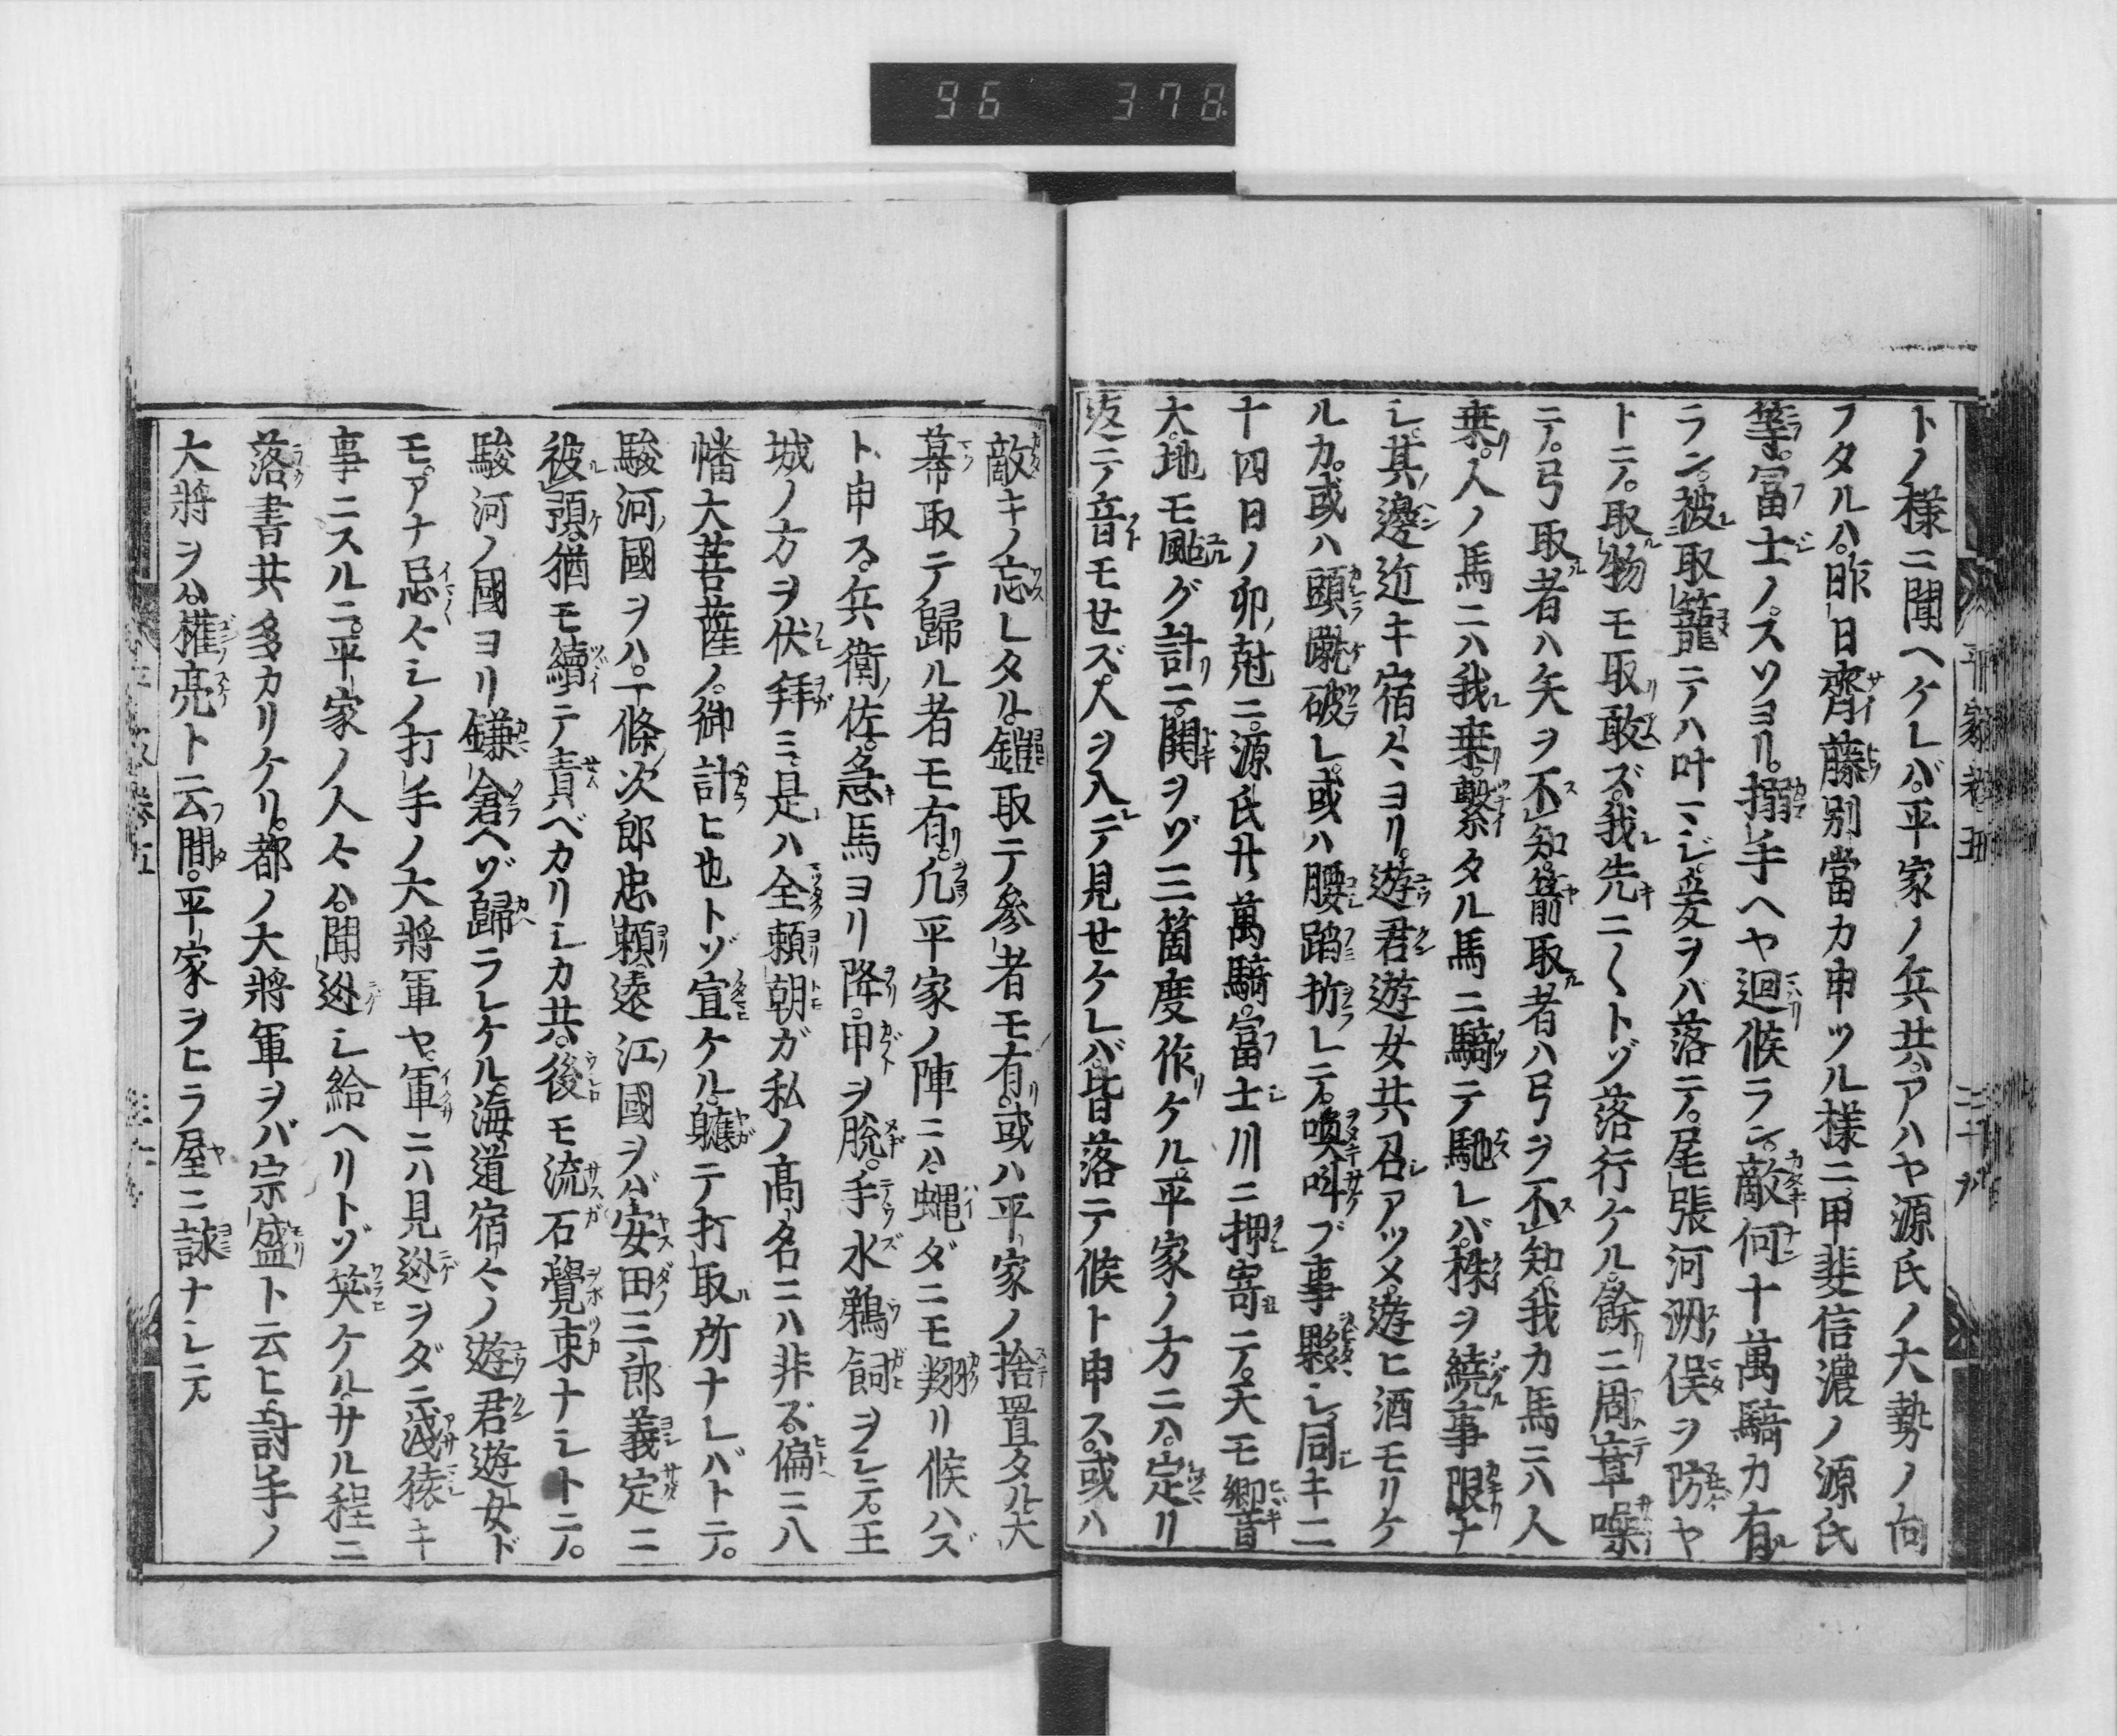 96 378
トノ様ニ聞ヘケレバ。平家ノ兵共。アハヤ源氏ノ大勢ノ向
フタルハ。昨日齊藤別當カ申ツル様ニ。甲斐信濃ノ源氏
等。冨士ノスソヨリ。搦手ヘヤ廻候ラン。敵何十萬騎カ有
ラン。被取籠テハ叶マジ。爰ヲバ落テ。尾張河洲俣ヲ防ヤ
トテ。取物モ取敢ズ。我先ニ〱トゾ落行ケル。餘ニ周章噪
テ。弓取者ハ矢ヲ不知。箭取者ハ弓ヲ不知。我カ馬ニハ人
乗。人ノ馬ニハ我乗。繫タル馬ニ騎テ馳レバ。株ヲ繞事限ナ
シ。其邊近キ宿々ヨリ。遊君遊女共召アツメ。遊ヒ酒モリケ
ルカ。或ハ頭蹴破レ。或ハ腰蹈折レテ。喚叫ブ事夥シ。同キ二
十四日ノ卯尅ニ。源氏廿萬騎。冨士川ニ押寄テ。天モ響
大地モ颭グ計ニ。鬨ヲゾ三箇度作ケル。平家ノ方ニハ。定リ
返テ音モセズ。人ヲ入テ見セケレバ。皆落テ候ト申ス。或ハ
敵キノ忘レタル。鎧取テ參者モ有。或ハ平家ノ捨置タル。大
幕取テ歸ル者モ有。凡平家ノ陣ニハ。蠅ダニモ翔リ候ハズ
ト申ス。兵衛佐。急馬ヨリ降。甲ヲ脫。手水鵜飼ヲシテ。王
城ノ方ヲ伏拜ミ。是ハ全頼朝ガ私ノ髙名ニハ非ズ。偏ニ八
幡大菩薩ノ。御計ヒ也トゾ宣ケル。軈テ打取所ナレバトテ。
駿河國ヲハ。一條次郎忠頼。遠江國ヲバ。安田三郎義定ニ
被預。猶モ續テ責ベカリシカ共。後モ流石覺束ナシトテ。
駿河ノ國ヨリ鎌倉ヘゾ歸ラレケル。海道宿々ノ遊君遊女ド
モ。アナ忌々シノ打手ノ大將軍ヤ。軍ニハ見迯ヲダニ淺猿キ
事ニスルニ。平家ノ人々ハ。聞迯シ給ヘリトゾ笑ケル。サル程ニ
落書共多カリケリ。都ノ大將軍ヲバ宗盛ト云ヒ。討手ノ
大將ヲハ。權亮ト云間。平家ヲヒラ屋ニ詠ナシテ
平家巻五
三十九